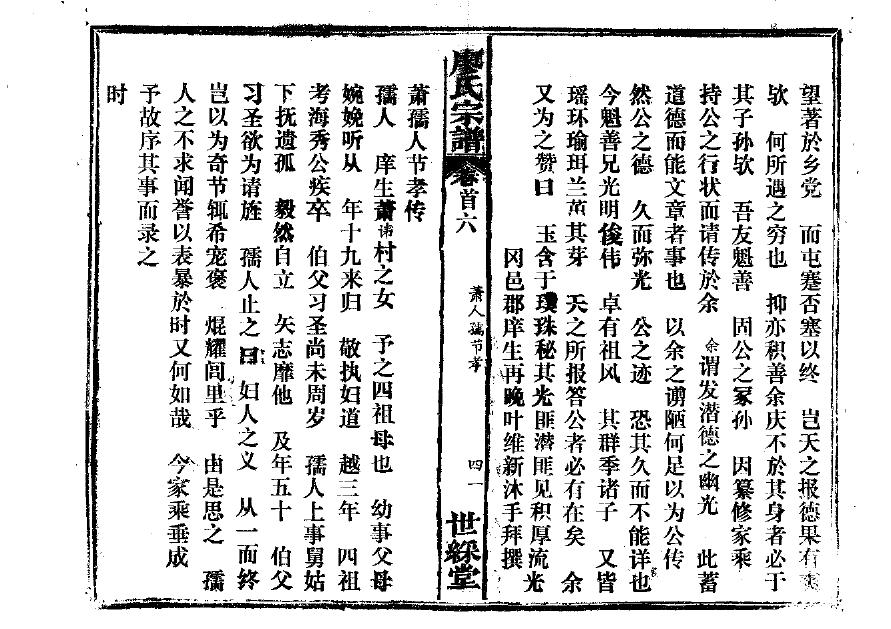 望著於乡党 而屯蹇否塞以终 岂天之报德果有
欤 何所遇之穷也 抑亦积善余庆不於其身者必于
其子孙欤 吾友魁善 固公之冢孙 因纂修家乘
持公之行状而请传於余 余谓发潜德之幽光 此蓄
道德而能文章者事也 以余之谫陋何足以为公传
然公之德 久而弥光 公之迹 恐其久而不能详也
今魁善兄光明俊伟 卓有祖风 其群季诸子 又皆
瑶环瑜珥兰茁其芽 天之所报答公者必有在矣 余
又为之赞曰 玉含于璞珠秘其光匪潜匪见积厚流光
冈邑郡庠生再晚叶维新沐手拜撰
廖氏宗譜 卷首六 萧人孺节孝 四一 世綵堂
萧孺人节孝传
孺人 庠生萧 村之女 予之四祖母也 幼事父母
婉娩听从 年十九来归 敬执妇道 越三年 四祖
考海秀公疾卒 伯父习圣尚未周岁 孺人上事舅姑
下抚遗孤 毅然自立 矢志靡他 及年五十 伯父
习圣欲为请旌 孺人止之曰 妇人之义 从一而终
岂以为奇节辄希宠褒 焜耀闾里乎 由是思之 孺
人之不求闻誉以表暴於时又何如哉 今家乘垂成
予故序其事而录之
时